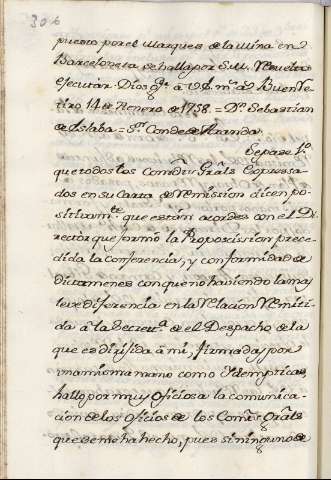 306
puesto por el Marques de la Mina en
Barcelona se halla por S.M. resuelto
ejecutar. Dios gᵉ. à V.S. mˢ. aˢ. Buen Re-
tiro 14 de Henero de 1758. = Dⁿ. Sebastian
de Eslaba = Sᵒʳ. Conde de Aranda.
Reparo 1º.
que todos los Comᵈⁱˢ Gràls Expressa-
dos en su Carta de remission dicen po-
sitivamᵗᵉ. que estàn acordes con el Di-
rector que formò la Proposission prece-
dida la conferencia, y conformidad de
dictamenes con que no haviendo la mas
leve diferencia en la relacion remiti-
da à la Secretᵃ. de el Despacho de la
que es dirijida à mi, firmadas por
una misma mano como Ydempticas,
hallo por muy Oficiosa la comunica-
cion de los Oficios de los Comᵉˢ. Gràls
que se me ha hecho, pues si ninguno de